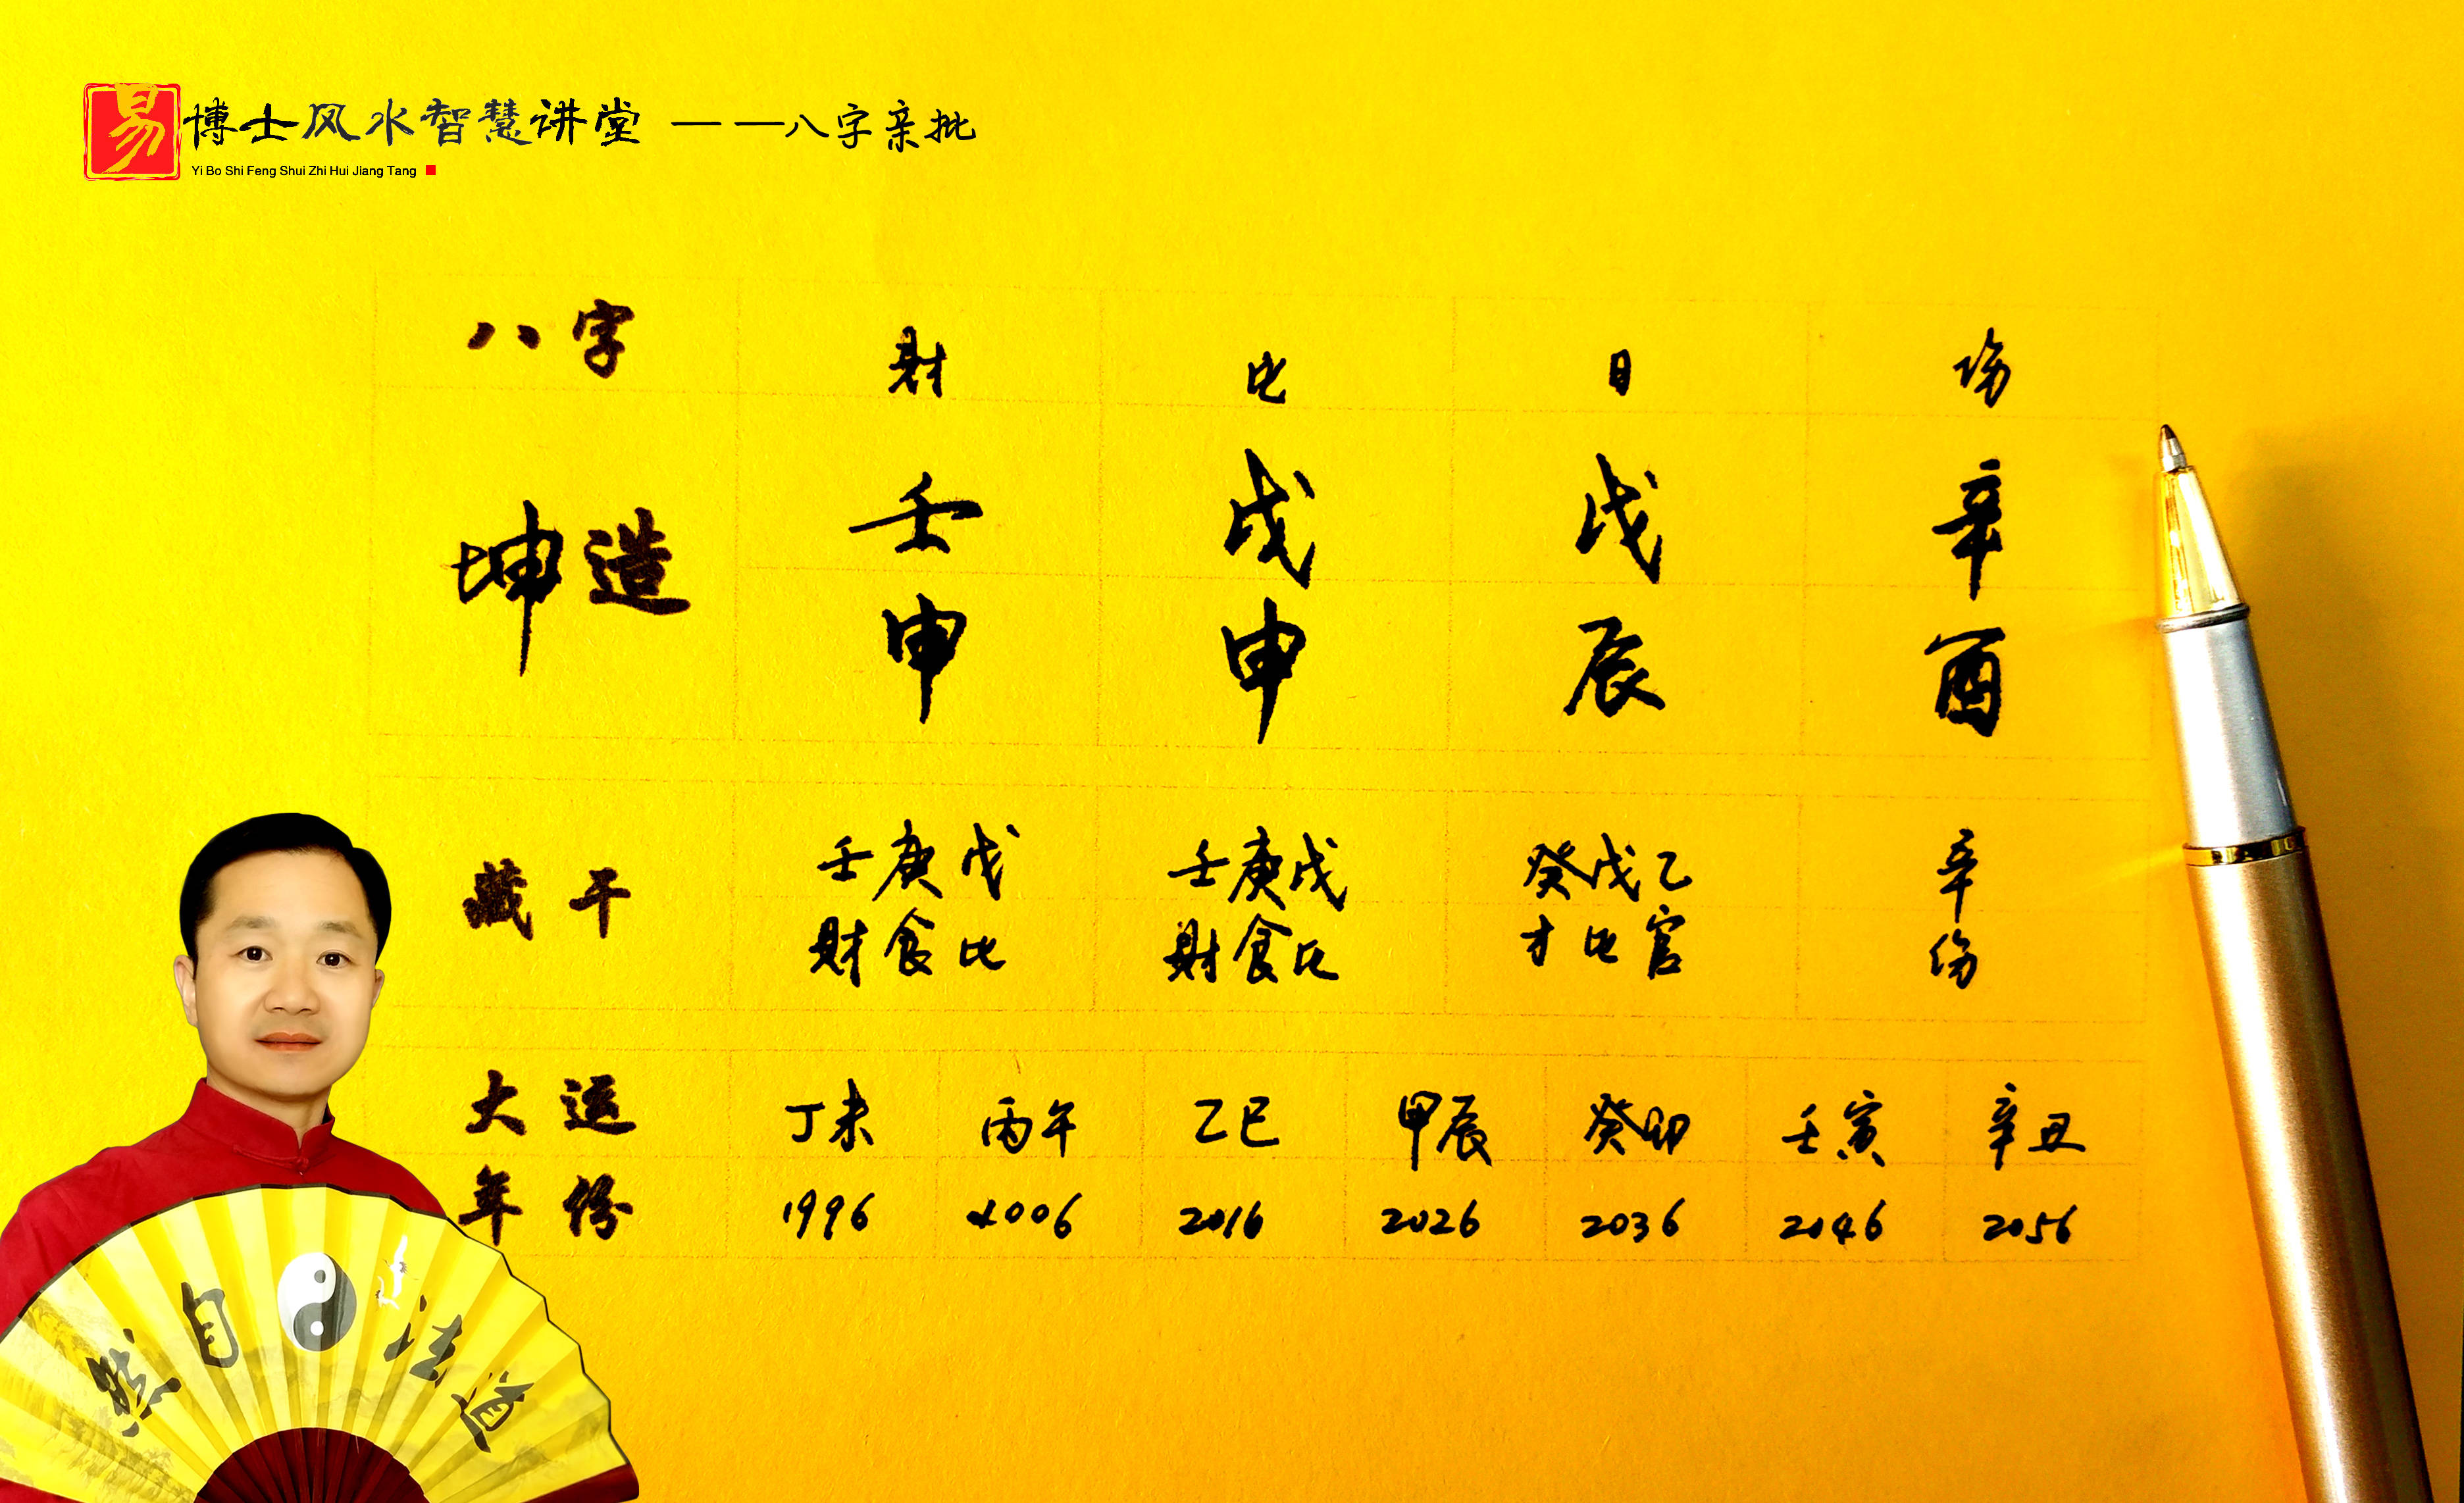 易博士风水智慧讲堂 ——八字亲批
Yi Bo Shi Feng Shui Zhi Hui Jiang Tang
八字 财 比 日 伤
坤造 壬 戊 戊 辛
申 申 辰 酉
藏干 壬庚戊 壬庚戊 癸戊乙 辛
财食比 财食比 才比官 伤
大运 丁未 丙午 乙巳 甲辰 癸卯 壬寅 辛丑
年份 1996 2006 2016 2026 2036 2046 2056
然自法道